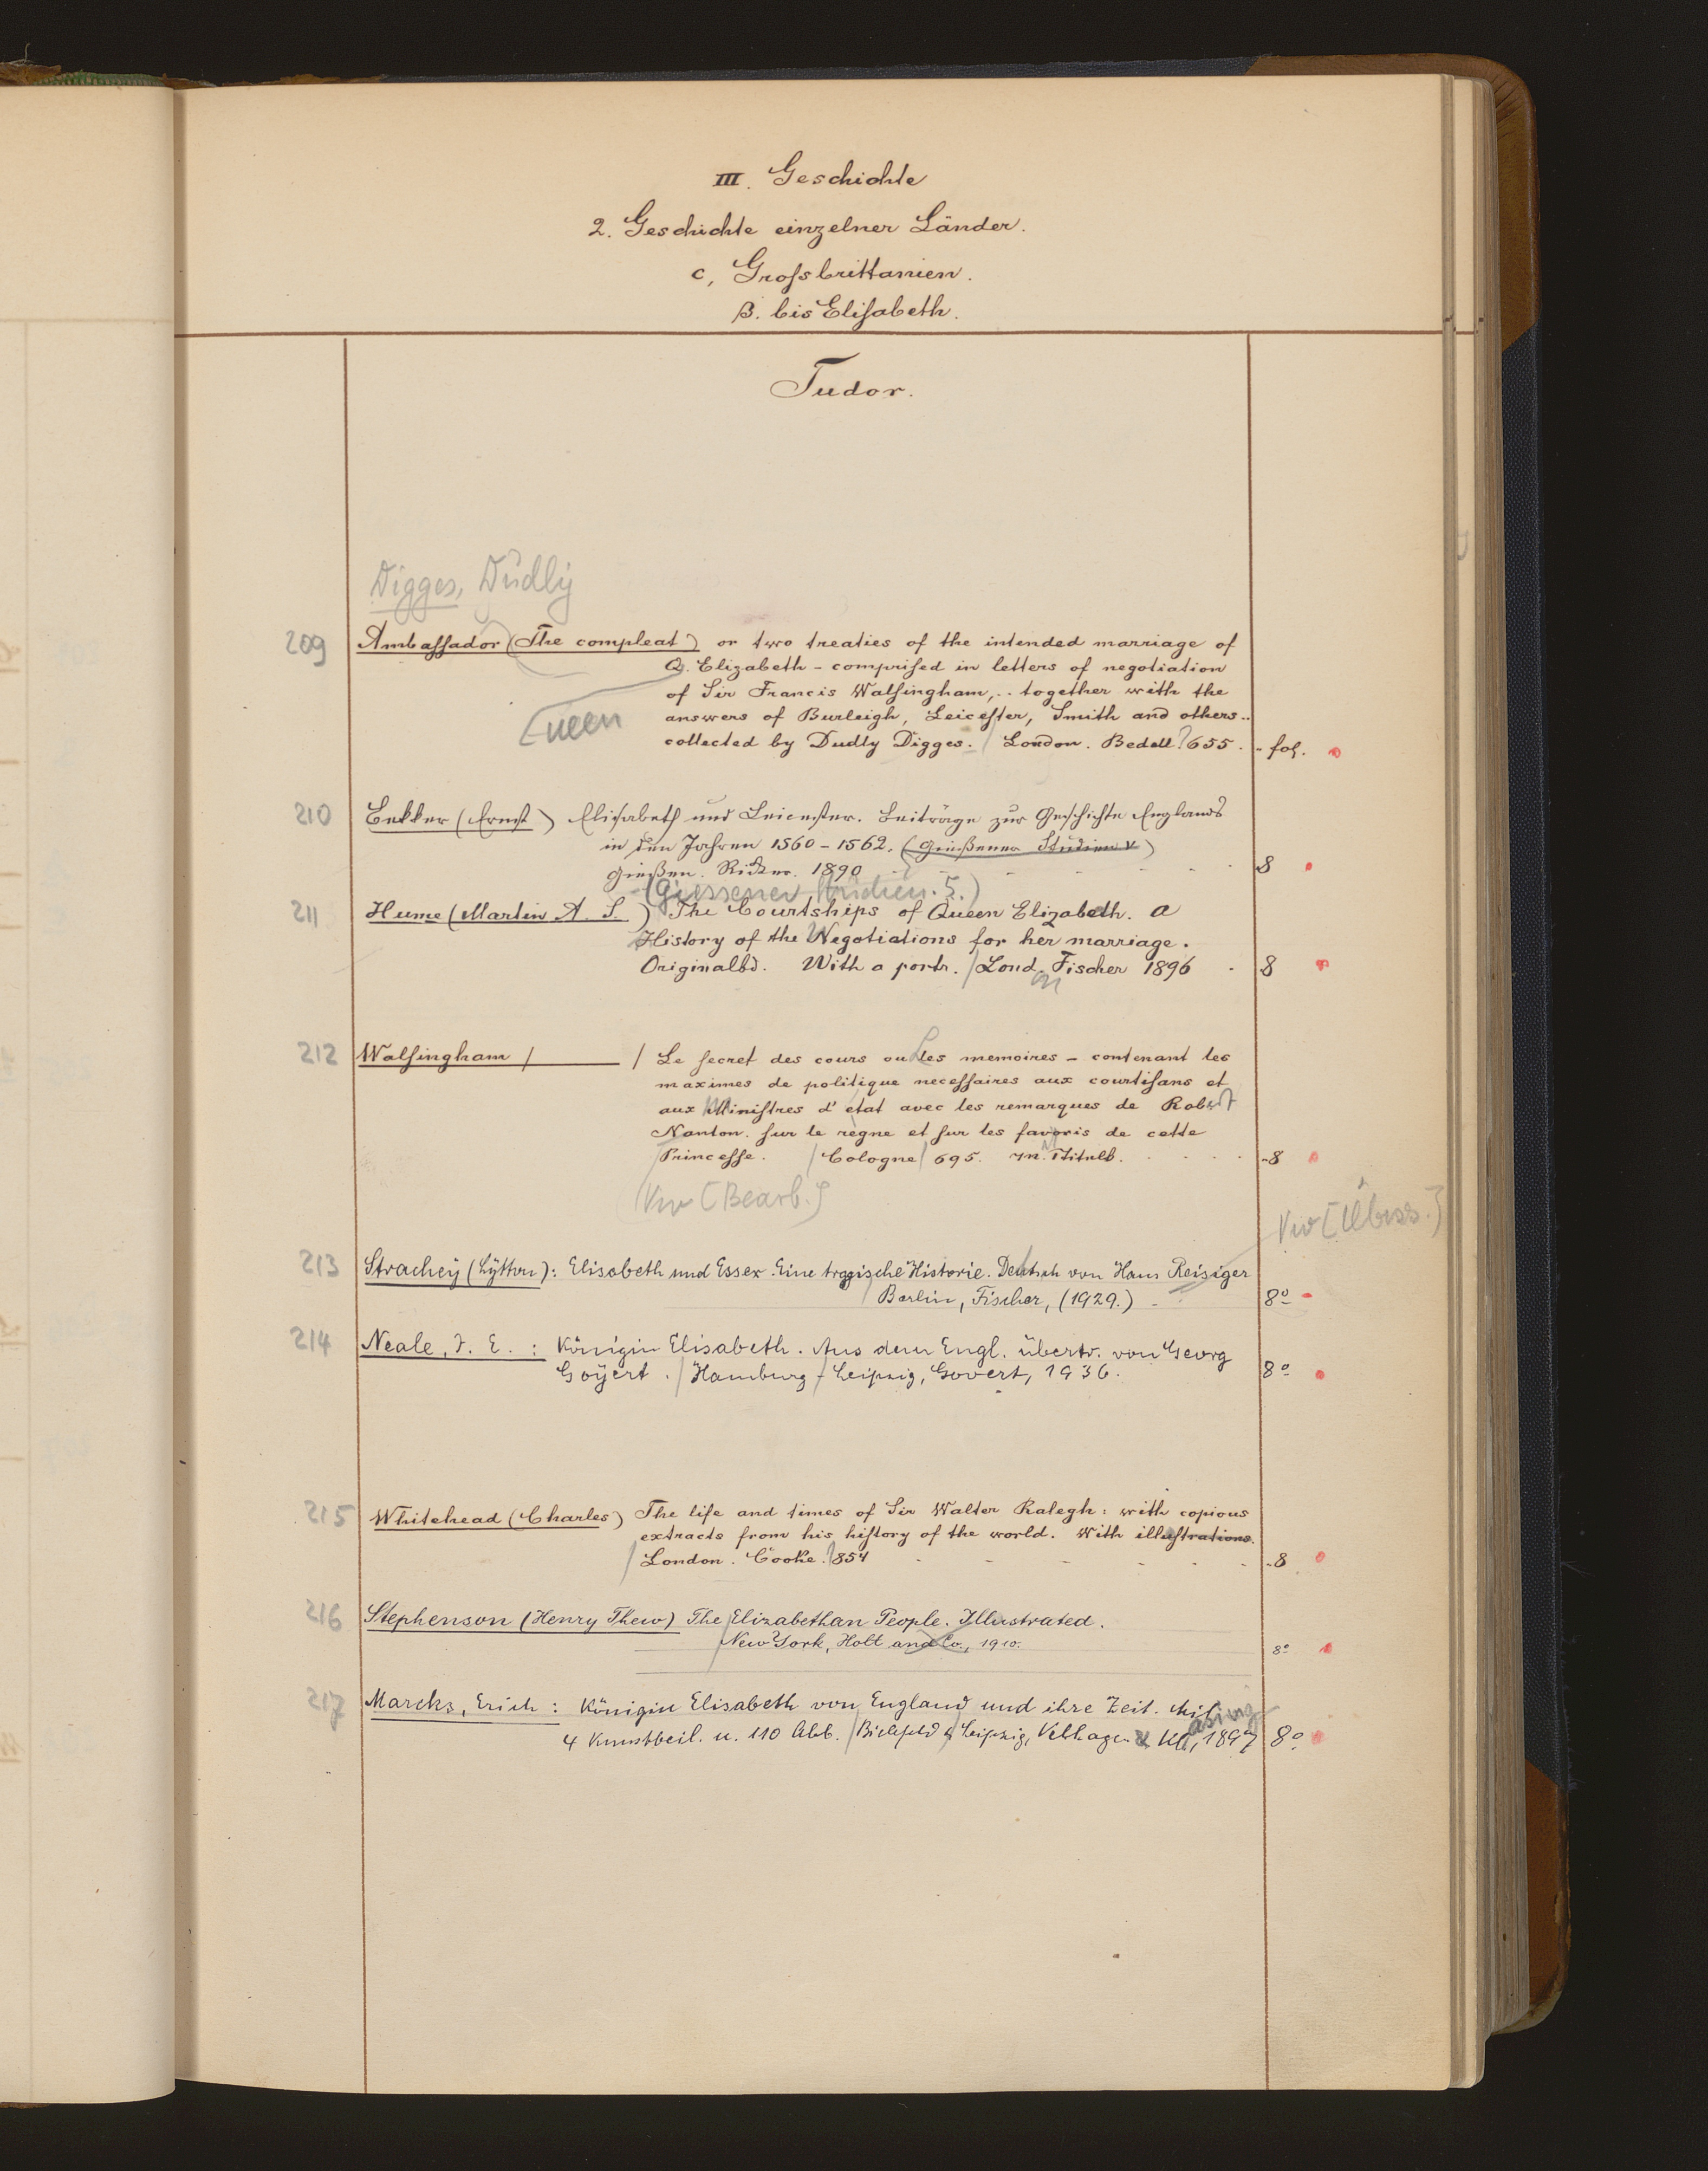 III. Geschichte
2. Geschichte einzelner Länder.
c, Grossbrittanien.
β. bis Elisabeth.
Tudor.
Digges, Dudly
209 Ambassador (The compleat) or two treaties of the intended marriage of
Q. Elizabeth - comprised in letters of negotiation
of Sir Francis Walsingham, .. together with the
ueen answers of Burleigh, Leicester, Smith and others ..
collected by Dudly Digges. / London. Bedell. 1655. - fol.
210 Bekker (Ernst) Elisabeth und Leicester. Beiträge zur Geschichte Englands
in den Jahren 1560-1562. (Gießener Studien V)
Gießen. Ricker. 1890 - - - - - 8
(Giessener Studien. 5.)
211 Hume (Martin A. S.) The Courtships of Queen Elizabeth. a
History of the Negotiations for her marriage.
Originalbd. With a portr. / Lond. Fischer 1896 - 8
on
212 Walsingham / / Le secret des cours ou Les memoires - contenant les
maximes de politique necessaires aux courtisans et
aux Ministres d'etat avec les remarques de Robert
Nanton. sur le règne et sur les favoris de cette
Princesse. / Cologne 1695. m. Titelb. - - - - 8
Vw [Bearb.]
Vw [Übers.]
213 Strachey (Lytton): Elisabeth und Essex. Eine tragische Historie. Deutsch von Hans Reisiger
Berlin, Fischer, (1929.) - 8º
214 Neale, J. E. : Königin Elisabeth. Aus dem Engl. übertr. von Georg
Goyert. / Hamburg - Leipzig, Govert, 1936. 8º
215 Whitehead (Charles) The life and times of Sir Walter Ralegh: with copious
extracts from his history of the world. With illustrations.
/ London. Cooke. 1854 - - - - - 8
216 Stephenson (Henry Thew) The Elizabethan People. Illustrated.
/ New York, Holt and Co., 1910. 8º
217 Marcks, Erich : Königin Elisabeth von England und ihre Zeit. Mit
asing
4 Kunstbeil. u. 110 Abb. / Bielefeld & Leipzig, Velhagen & Kl, 1897 8º